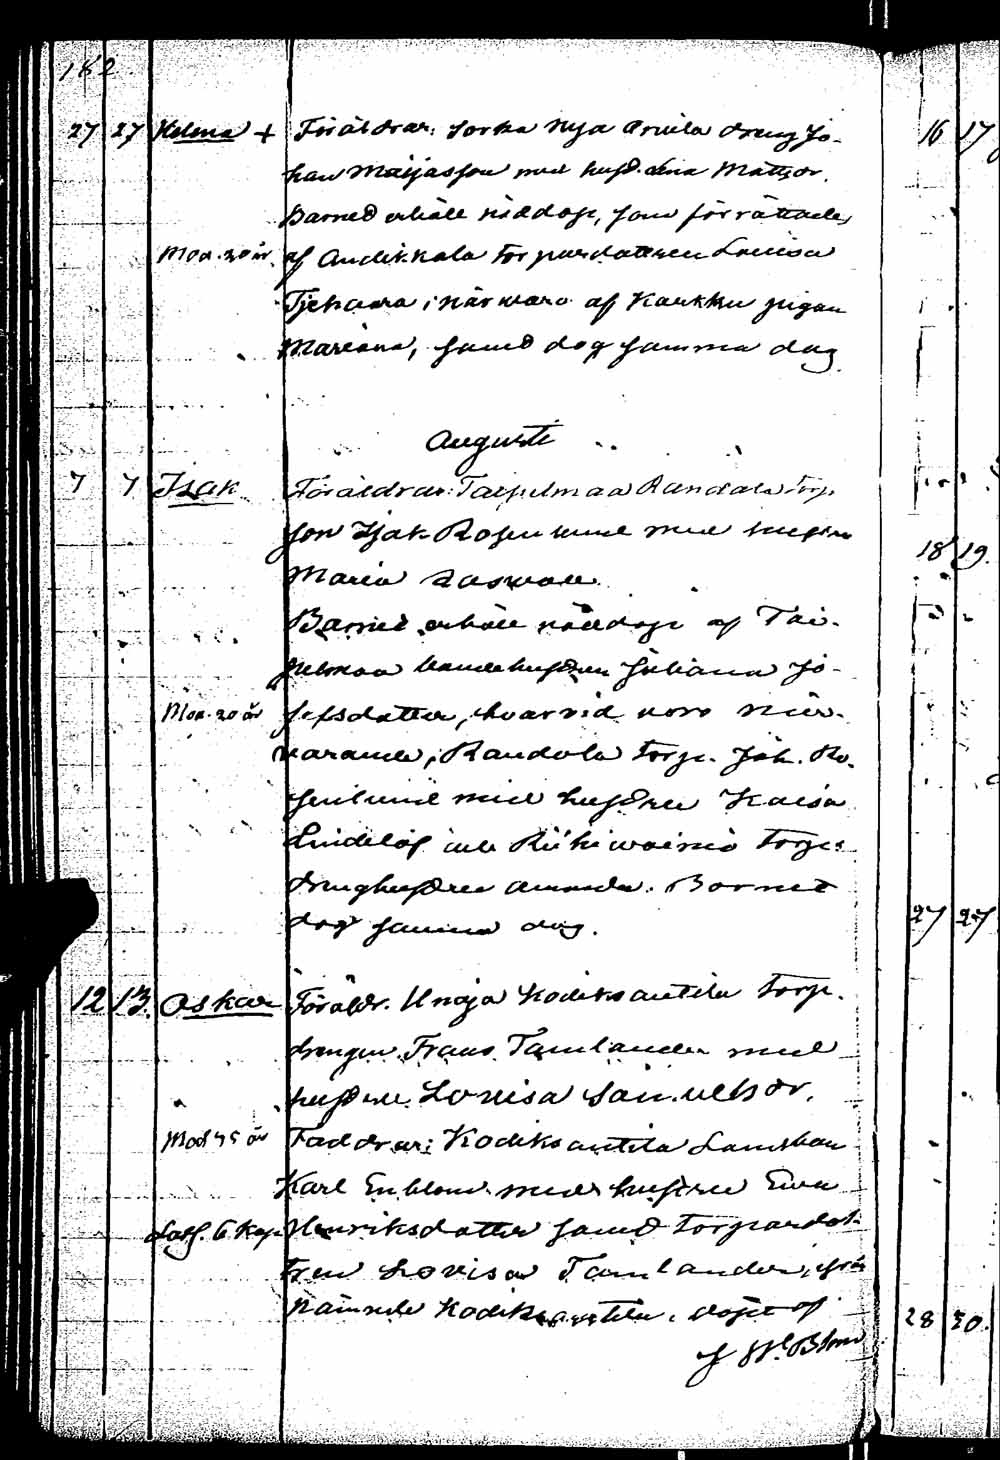 182.
27 27 Helena + Föräldrar: Sorka Nya Arvila dreng Jo-
han Maijasson med hust. Lina Mattsdr.
Barned erhåll nöddop, som förrättades
Mod. 20 år. af Andikkala torpardottren Lovisa
Tjekaara i närwaro af Karkku pigan
Mariana, samt dog samma dag.
Augusti
7 7 Isak Föräldrar: Taipelmaa Randala torp.
son Isak Rosenlund med hustru
Maria
Barnet erhåll nöddop af Tai-
pelmaa bondehustrun Juliana Jo-
Mod. 20 år sefsdotter, hvarvid voro när-
varande, Randala torp. Joh. Ro-
senlund med hustrun Kaisa
Lindelöf och torp.
drenghustrun Amanda. Barnet
dog samma dag.
12 13. Oskar Föräldr. Unaja Kodiksantila torp.
drengen Frans Tamlander med
hustrun Lovisa Samuelsdr.
Mod 45 år Faddrar: Kodiksantila Landtbon
Karl Enblom med hustrun Eva
6 kop. Henriksdotter samt torpardot-
tren Lovisa Tamlander, från
nämnde Kodiksantila. döpt af
Blom
16 17
18 19.
27 27
28 30.